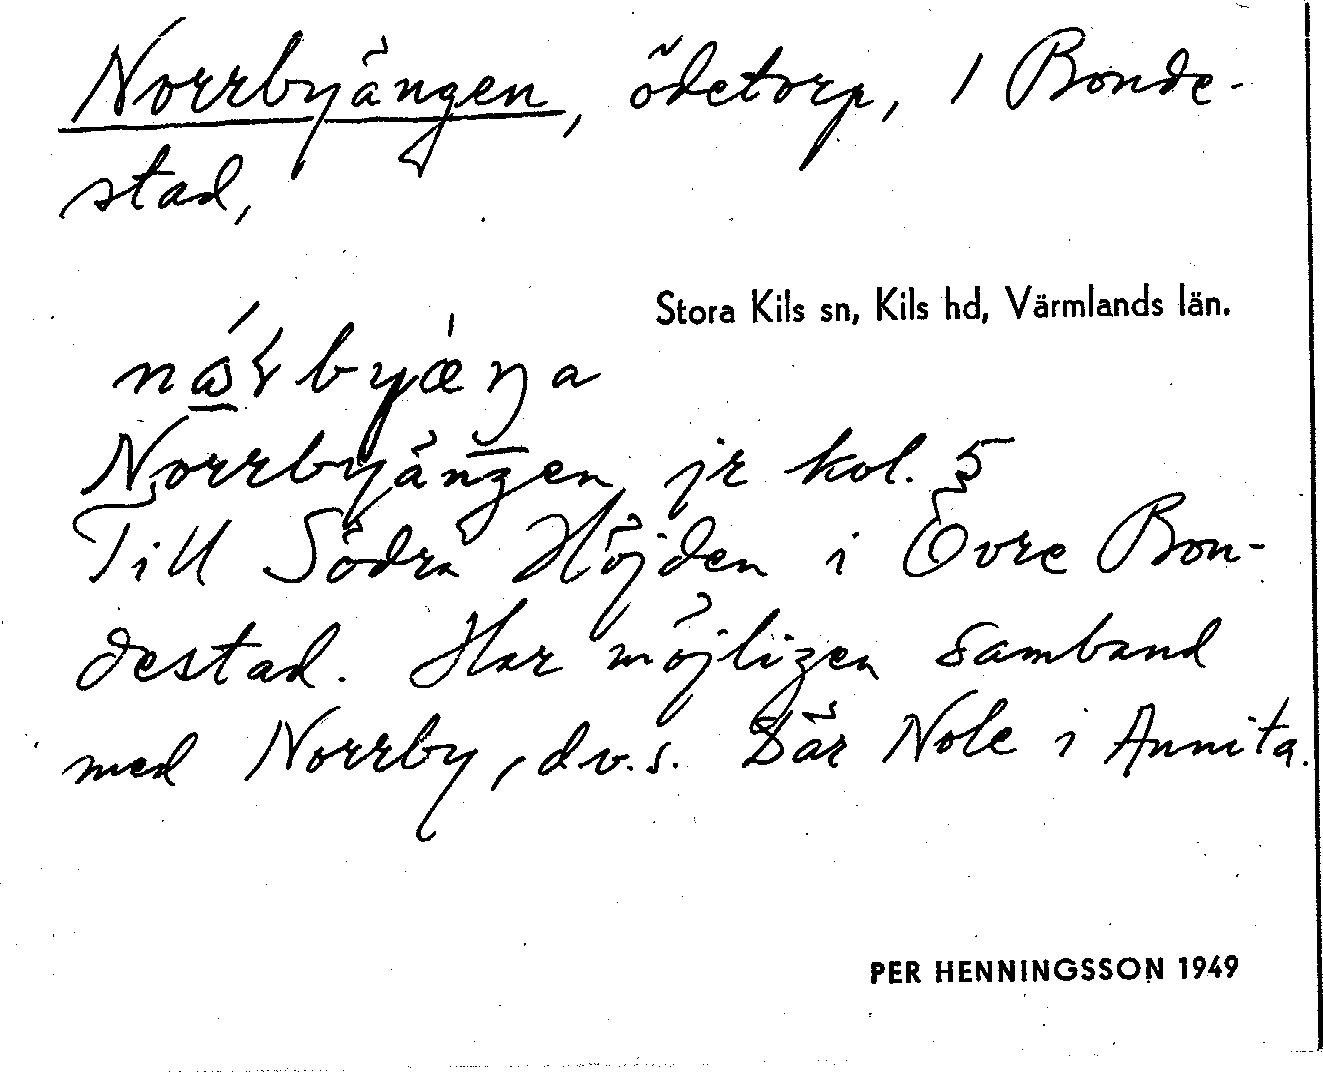 Norrbyängen, ödetorp, i Bonde-
stad,
Stora Kils sn, Kils hd, Värmlands län.
Norrbyängen jr kol. 5
Till Södra Höjden i Övre Bon-
destad. Har möjligen samband
med Norrby, dv.s. Där Nole i Annita.
PER HENNINGSSON 1949